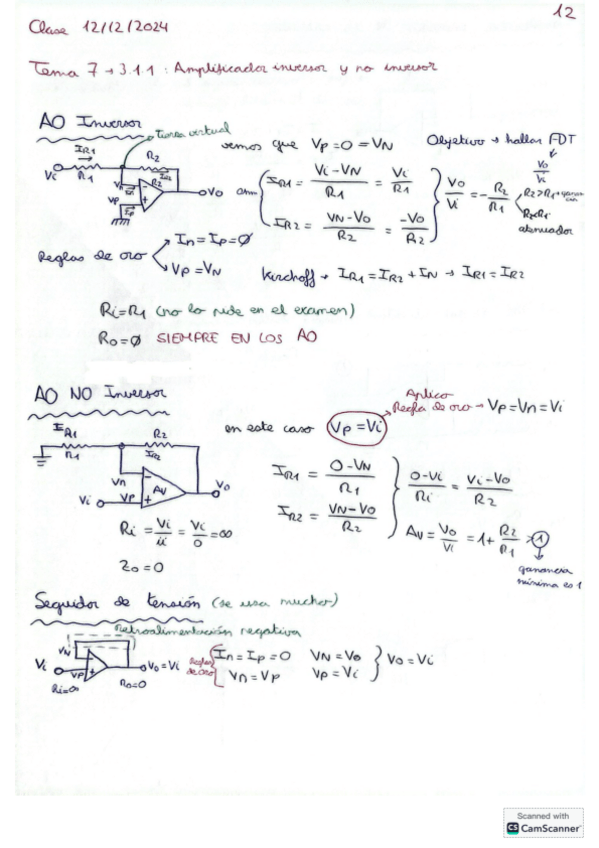 12
Clase 12/12/2024
Tema 7 → 3.1.1 : Amplificador inversor y no inversor
AO Inversor
tierra virtual
vemos que Vp=0=VN
Objetivo → hallar FDT
Vo/Vi
IR1
R1
R2
IR2
Vi
Vn
Vp
Vo
In
Ip
Ohm
IR1 = (Vi-VN)/R1 = Vi/R1
IR2 = (VN-Vo)/R2 = -Vo/R2
Vo/Vi = -R2/R1
R2>R1→ganancia
R2<R1
atenuador
Reglas de oro
In=Ip=0
Vp=VN
Kirchoff → IR1=IR2+IN → IR1=IR2
Ri=R1 (no lo pide en el examen)
Ro=0 SIEMPRE EN LOS AO
AO NO Inversor
en este caso Vp=Vi
Aplico
Regla de oro → Vp=Vn=Vi
IR1
R1
R2
IR2
Vn
Vi
Vp
AV
Vo
IR1 = (0-VN)/R1
IR2 = (VN-Vo)/R2
(0-Vi)/Ri = (Vi-Vo)/R2
Av = Vo/Vi = 1+R2/R1 >1
ganancia
mínima es 1
Ri = Vi/ii = Vi/0 = ∞
Zo=0
Seguidor de tensión (se usa mucho)
Retroalimentación negativa
VN
Vi
Vp
Vo=Vi
Ri=∞
Ro=0
Reglas
de oro
In=Ip=0 VN=Vo
Vn=Vp Vp=Vi
Vo=Vi
Scanned with
CS CamScanner